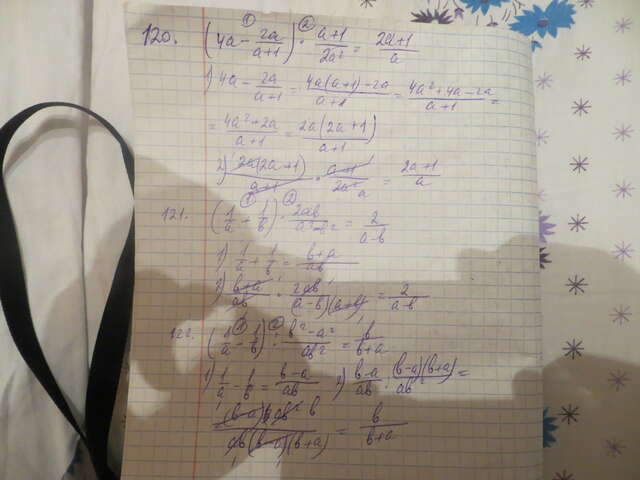 ① ②
120. (4a - 2a/(a+1)) · (a+1)/(2a²) = (2a+1)/a
1) 4a - 2a/(a+1) = (4a(a+1)-2a)/(a+1) = (4a²+4a-2a)/(a+1) =
= (4a²+2a)/(a+1) = 2a(2a+1)/(a+1)
2) 2a(2a+1)/(a+1) · (a+1)/(2a²) = (2a+1)/a
① ②
121. (1/a + 1/b) · 2ab/(a²-b²) = 2/(a-b)
1) 1/a + 1/b = (b+a)/(ab)
2) (b+a)/(ab) · 2ab/((a-b)(a+b)) = 2/(a-b)
① ②
122. (1/a - 1/b) : (b²-a²)/(ab²) = b/(b+a)
1) 1/a - 1/b = (b-a)/(ab) 2) (b-a)/(ab) : (b-a)(b+a)/(ab²) =
(b-a) ab² b/(ab(b-a)(b+a)) = b/(b+a)